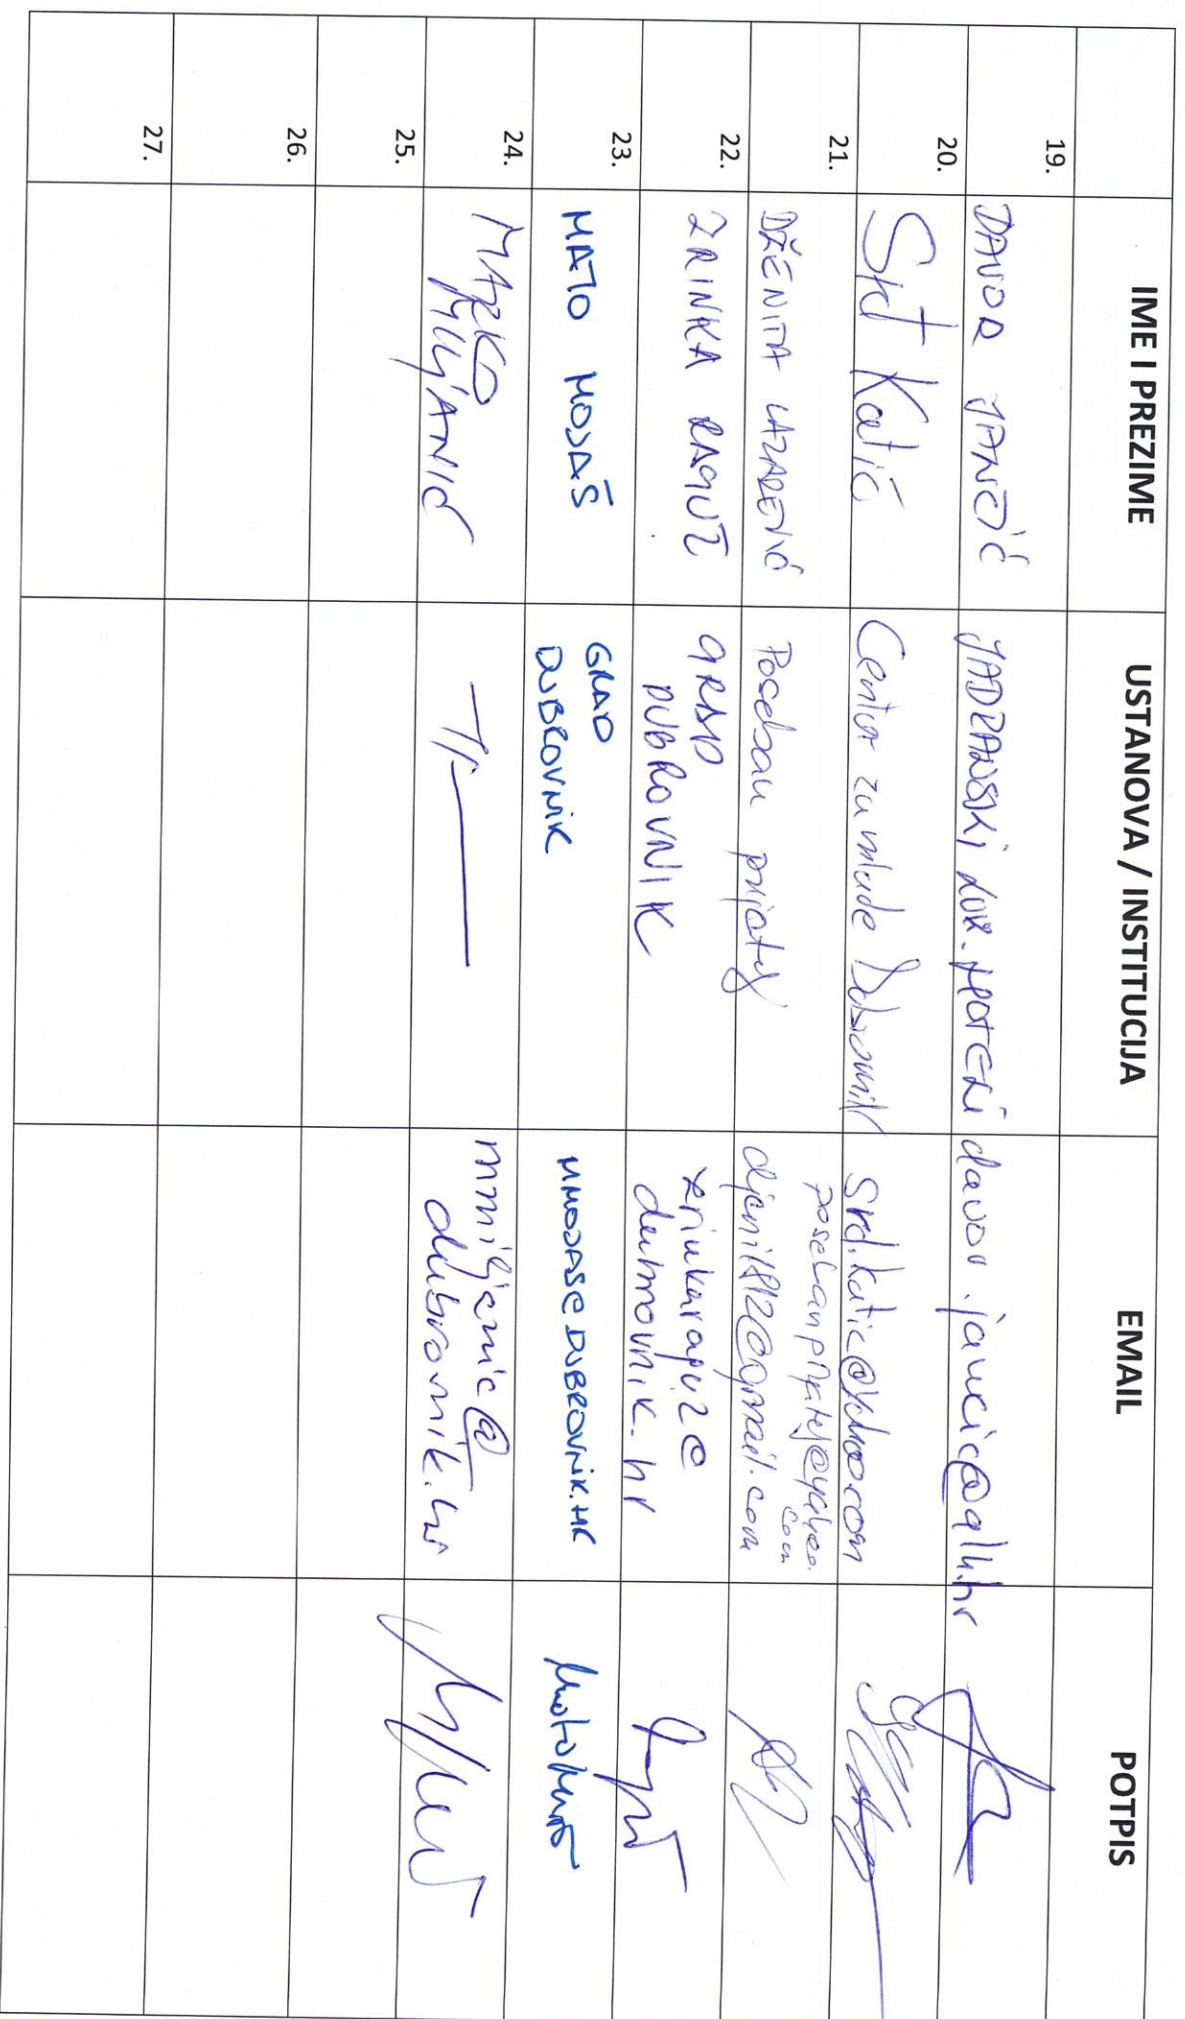 IME I PREZIME USTANOVA / INSTITUCIJA EMAIL POTPIS
19. DAVOR JANČIĆ JADRANSKI davor.jancic@alu.hr
20. Srđ Katić Centar za mlade Dubrovnik srd.katic@yahoo.com
21. DŽENITA LAZAREVIĆ Poseban prijatelj posebanprijatelj@yahoo.
com
djeni1812@gmail.com
22. ZRINKA RAGUŽ GRAD
DUBROVNIK
dubrovnik.hr
23. MATO MOJAŠ GRAD
DUBROVNIK MMOJAS@DUBROVNIK.HR
24. MARKO
MILJANIĆ -11- mmiljanic@
dubrovnik.hr
25.
26.
27.